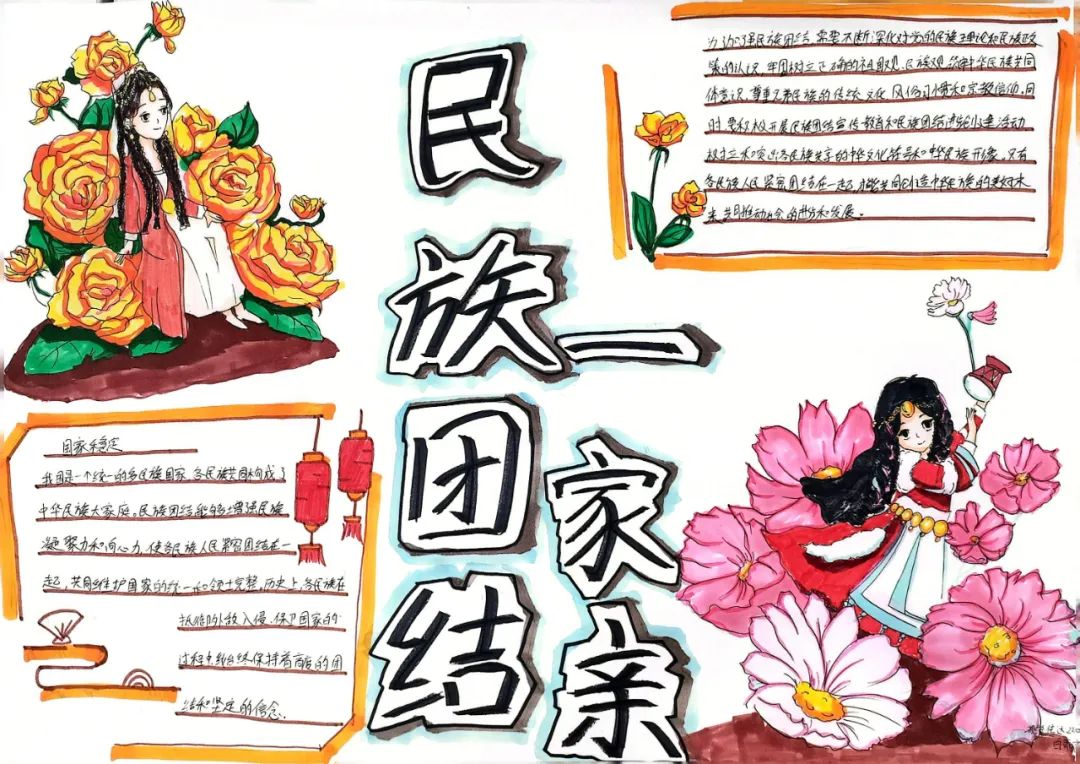 民族团结
一家亲
为加强民族团结,需要不断深化对党的民族理论和民族政
策的认识,牢固树立正确的祖国观、民族观,铸牢中华民族共同
体意识,尊重各民族的传统文化、风俗习惯和宗教信仰,同
时,要积极开展民族团结宣传教育和民族团结进步创建活动
树立和突出各民族共享的中华文化符号和中华民族形象,只有
各民族人民紧密团结在一起,才能共同创造中华民族的美好未
来,共同推动社会的进步和发展。
国家稳定
我国是一个统一的多民族国家,各民族共同构成了
中华民族大家庭。民族团结能够增强民族
凝聚力和向心力,使各民族人民紧密团结在一
起,共同维护国家的统一和领土完整,历史上,各民族在
抵御外敌入侵、保卫国家的
过程中始终保持着高度的团
结和坚定的信念.